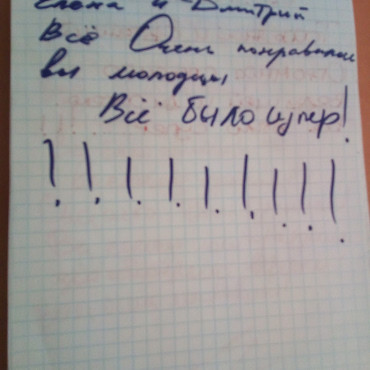 Елена и Дмитрий
Всё Очень понравилось
вы молодцы
Всё было супер!
! ! ! ! ! ! ! ! !